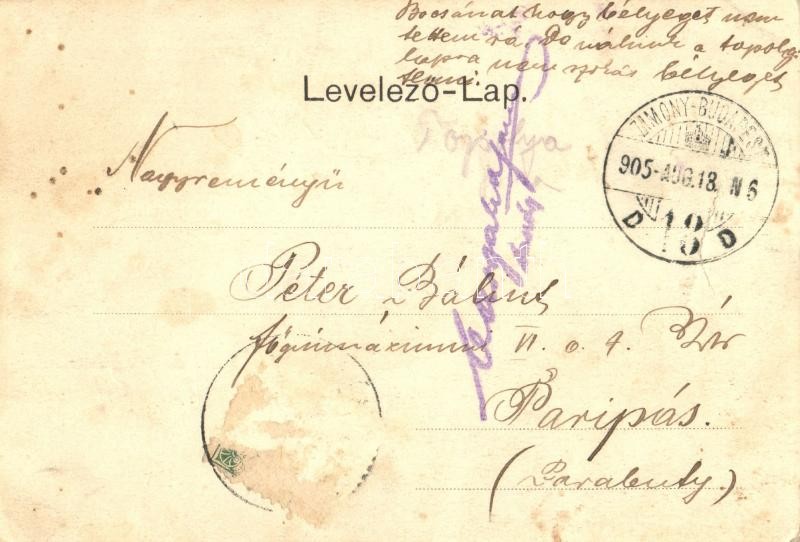 Bocsánat hogy bélyeget nem
tettem rá. De nálunk a topolyi
lapra nem szokás bélyeget
tenni.
Levelező-Lap.
Topolya
ZIMONY-BUDAPEST
905-AUG.18. N6
D 18 D
Nagyreményű
Péter Bálint
főgimnáziumi VI. o. t. Úr
Paripás.
(Parabuty.)